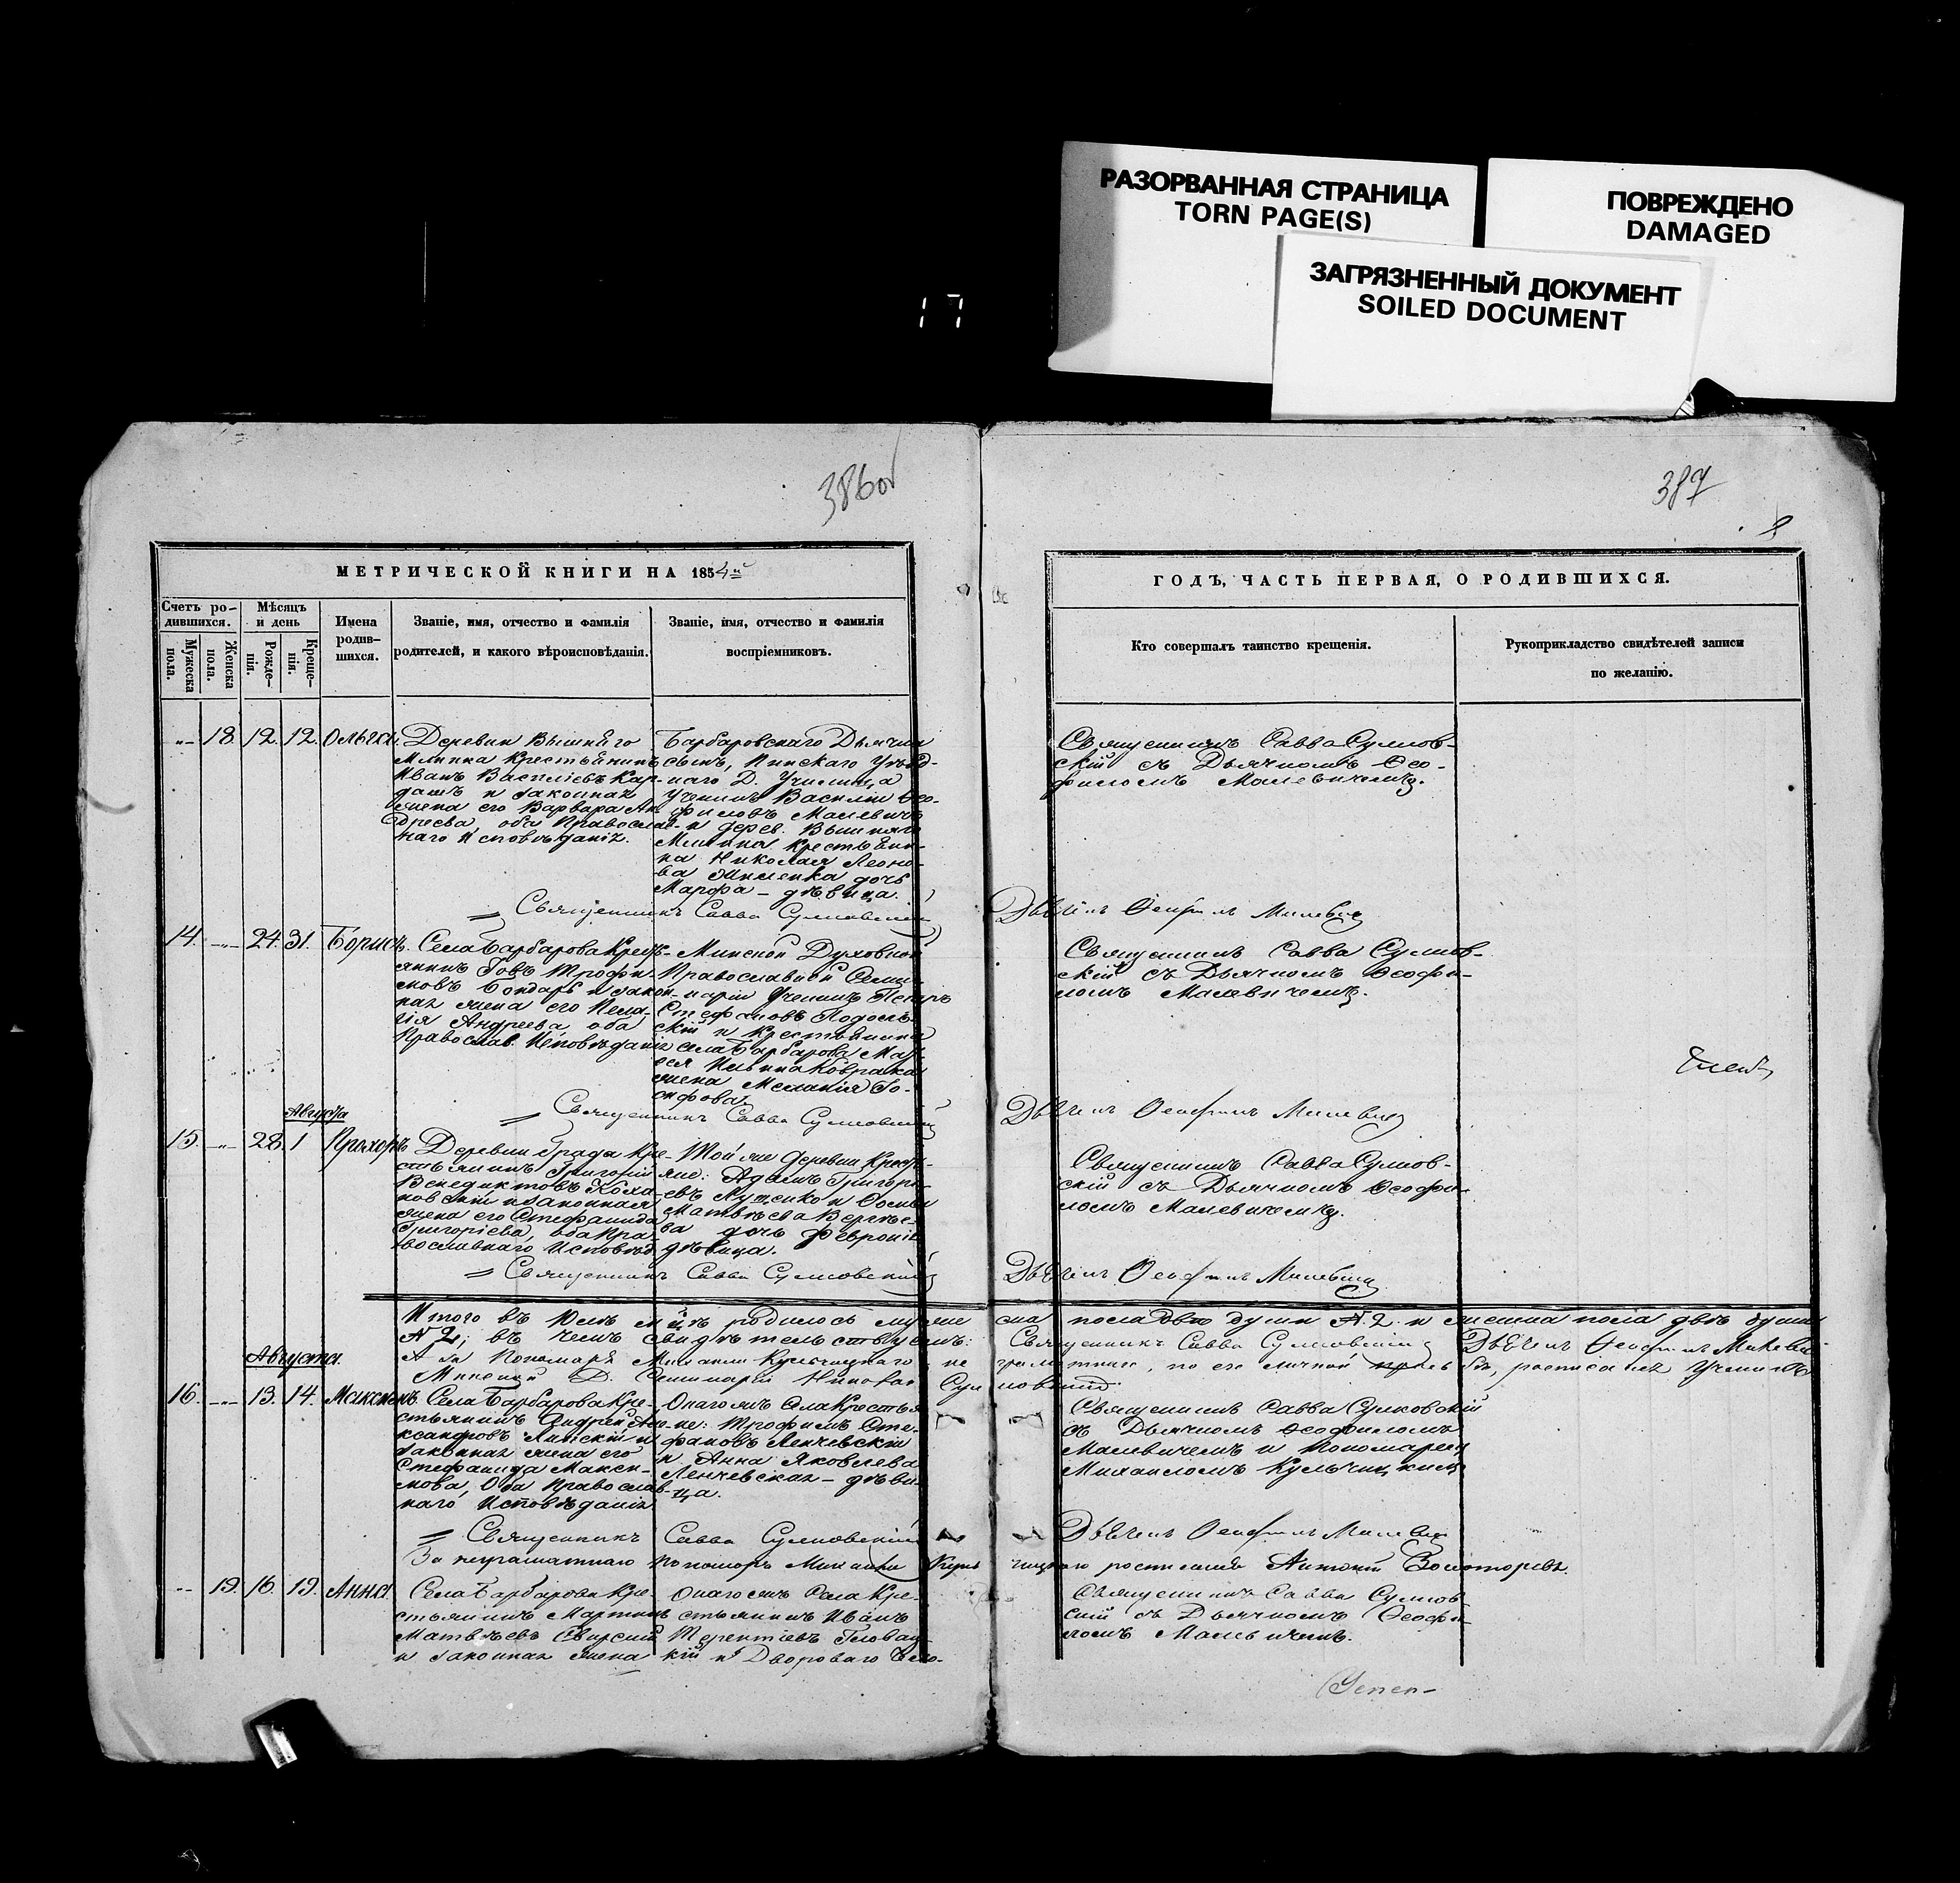 РАЗОРВАННАЯ СТРАНИЦА
TORN PAGE(S)
ПОВРЕЖДЕНО
DAMAGED
ЗАГРЯЗНЕННЫЙ ДОКУМЕНТ
SOILED DOCUMENT
17
386об
387
МЕТРИЧЕСКОЙ КНИГИ НА 1854й
ГОДЪ, ЧАСТЬ ПЕРВАЯ, О РОДИВШИХСЯ.
Счетъ ро-
дившихся.
Мужеска
пола.
Женска
пола.
Мѣсяцъ
и день
Рожде-
нія.
Креще-
нія.
Имена
родив-
шихся.
Званіе, имя, отчество и фамилія
родителей, и какого вѣроисповѣданія.
Званіе, имя, отчество и фамилія
воспріемниковъ.
Кто совершалъ таинство крещенія.
Рукоприкладство свидѣтелей записи
по желанію.
18. 12. 12. Ольга.
Деревни Вышняго
Млынка Крестьянинъ
Иванъ Василіевъ Кар-
дашъ и законная
жена его Варвара Ан
дреева, оба Православ-
наго Исповѣданія.
Барбаровскаго Дьячка
сынъ, Пинскаго Уѣзд-
наго Д. Училища
Ученикъ Василій Ѳео-
филовъ Малевичъ
и дерев. Вышняго
Млынка Крестьяни-
на Николая Леоно-
ва дочь
Марфа – дѣвица.
Священникъ Савва Сулков-
скій съ Дьячкомъ Ѳео-
филомъ Малевичемъ.
Священникъ Савва Сулковскій
Дьячекъ Ѳеофилъ Малевичъ
14. 24. 31. Борисъ.
Села Барбарова Кресть-
янинъ Іовъ Трофи-
мовъ Бондарь и закон-
ная жена его Пела-
гія Андреева, оба
Православ. Исповѣданія
Минской Духовной
Православной Семи-
наріи Ученикъ Петръ
Стефановъ Подоль-
скій и Крестьянина
села Барбарова Мат
ѳея Ильина
жена Меланія Іо-
сифова.
Священникъ Савва Сулков-
скій съ Дьячкомъ Ѳеофи-
ломъ Малевичемъ.
Священникъ Савва Сулковскій
Дьячекъ Ѳеофилъ Малевичъ
Августа
15. 28. 1 Прохоръ
Деревни Града Кре-
стьянинъ Григорій
Венедиктовъ Коха-
новскій и законная
жена его Стефанида
Григоріева, оба Пра-
вославнаго Исповѣд.
Той же деревни Кресть-
яне: Адамъ Григорі-
евъ и
Матвѣева
ва дочь Февронія
дѣвица.
Священникъ Савва Сулков-
скій съ Дьячкомъ Ѳеофи-
ломъ Малевичемъ.
Священникъ Савва Сулковскій
Дьячекъ Ѳеофилъ Малевичъ
Итого въ Іюлѣ м-цѣ родилось муже ска пола двѣ души № 2. и женска пола двѣ души
№ 2; въ чемъ свидѣтельствуемъ: Священникъ Савва Сулковскій Дьячекъ Ѳеофилъ Малевичъ
А за Пономаря Михаила Кульчицкаго не грамотнаго, по его личной прозьбѣ, росписался Ученикъ
Минской Д. Семинаріи Николай Сулковскій
Августа.
16. 13. 14. Максимъ.
Села Барбарова Кре-
стьянинъ Андрей Але-
ксандровъ и
законная жена его
Стефанида Макси-
мова, Оба Православ-
наго Исповѣданія
Онаго жъ Села Крестья
не: Трофимъ Сте-
фановъ Ленчевскій
и Анна Яковлева
Ленчевская – дѣви-
ца.
Священникъ Савва Сулковскій
съ Дьячкомъ Ѳеофиломъ
Малевичемъ и Пономаремъ
Михаиломъ Кульчицкимъ
Священникъ Савва Сулковскій
Дьячекъ Ѳеофилъ Малевичъ
За неграматнаго пономаря Михаила Куль чицкаго росписался Антоній
19. 16. 19. Анна
Села Барбарова Кре-
стьянинъ Мартинъ
Матвѣевъ Свирскій
и законная жена
Онаго жъ Села Кре-
стьянинъ Иванъ
Терентіевъ Головац-
кій и Двороваго
Священникъ Савва Сулков
скій съ Дьячкомъ Ѳеофи-
ломъ Малевичемъ.